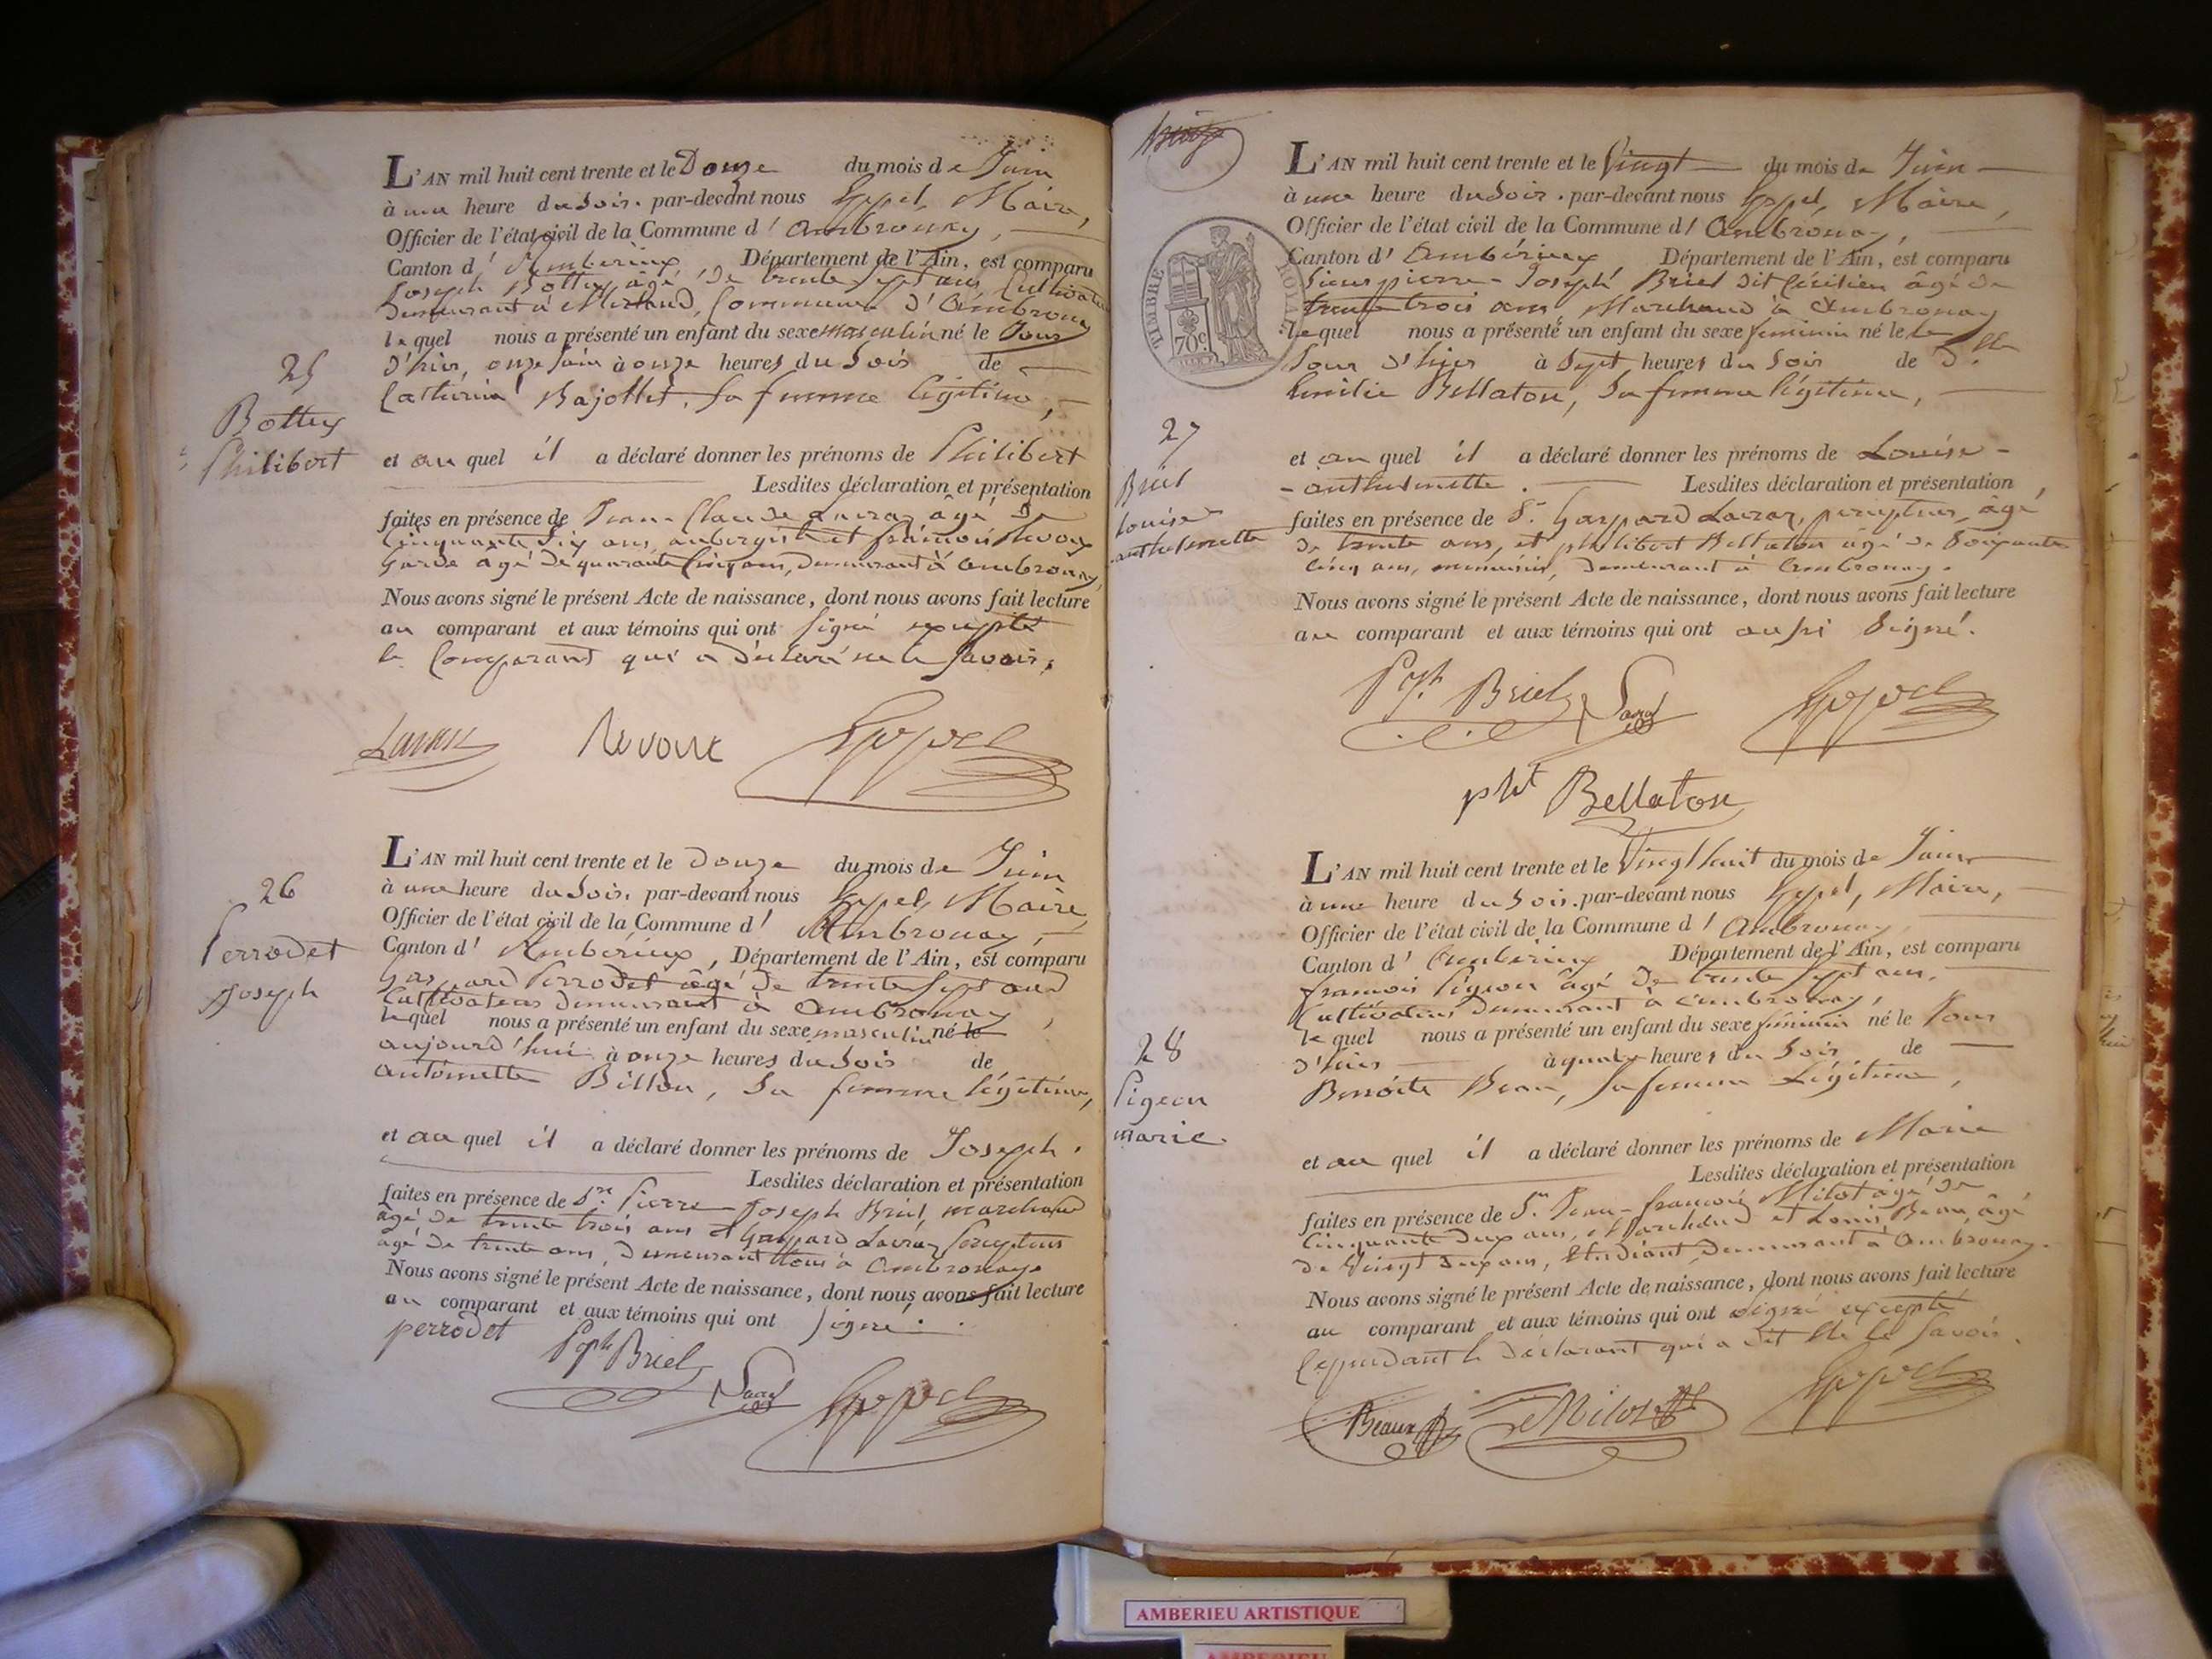 L'AN mil huit cent trente et le Douze du mois de Juin
à une heure du Soir. par-devant nous Gppel, Maire,
Officier de l'état civil de la Commune d' Ambronay,
Canton d' Ambérieux Département de l'Ain, est comparu
Joseph Bottex, âgé de trente sept ans, Cultivateur
Demeurant à Merland, Commune d'Ambronay
lequel nous a présenté un enfant du sexe masculin né le Jour
d'hier, onze Juin à onze heures du Soir de
Catherine Bajollet, sa femme légitime,
25
Bottex
Philibert
et au quel il a déclaré donner les prénoms de Philibert
Lesdites déclaration et présentation
faites en présence de Jean-Claude Lavraz âgé de
Cinquante Six ans, aubergiste et françois Revoux
Garde âgé de quarante Cinq ans, demeurant à Ambronay,
Nous avons signé le présent Acte de naissance, dont nous avons fait lecture
au comparant et aux témoins qui ont Signé excepté
le Comparant qui a déclaré ne le Savoir.
Revoux
L'AN mil huit cent trente et le Douze du mois de Juin
à une heure du Soir. par-devant nous Gppel, Maire,
Officier de l'état civil de la Commune d' Ambronay,
Canton d' Ambérieux, Département de l'Ain, est comparu
26
Perrodet
Joseph
Gaspard Perrodet âgé de trente Sept ans
Cultivateur demeurant à Ambronay,
lequel nous a présenté un enfant du sexe masculin né le
aujourd'hui à onze heures du Soir de
antoinette Billon, Sa femme légitime,
et au quel il a déclaré donner les prénoms de Joseph.
Lesdites déclaration et présentation
faites en présence de Sr. Pierre Joseph Briel, marchand
âgé de trente trois ans et Gaspard Lavraz percepteur
âgé de trente ans, Demeurant tous à Ambronay.
Nous avons signé le présent Acte de naissance, dont nous avons fait lecture
au comparant et aux témoins qui ont signé.
perrodet Pph Briel
L'AN mil huit cent trente et le Vingt du mois de Juin
à une heure du Soir. par-devant nous Gppel, Maire,
Officier de l'état civil de la Commune d' Ambronay,
Canton d' Ambérieux Département de l'Ain, est comparu
TIMBRE ROYAL
70c
Sieur pierre-Joseph Briel dit Cécilien âgé de
trente trois ans Marchand à Ambronay
lequel nous a présenté un enfant du sexe féminin né le le
Jour d'hier à Sept heures du Soir de Dlle
Emilie Bellaton, Sa femme légitime,
27
Briel
Louise
anthelmette
et au quel il a déclaré donner les prénoms de Louise-
-anthelmette. Lesdites déclaration et présentation
faites en présence de Sr. Gaspard Lavraz, percepteur, âgé
de trente ans, et philibert Bellaton âgé de Soixante
Cinq ans, menuisier, Demeurant à Ambronay.
Nous avons signé le présent Acte de naissance, dont nous avons fait lecture
au comparant et aux témoins qui ont aussi Signé.
Pph Briel
pht Bellaton
L'AN mil huit cent trente et le Vingt huit du mois de Juin
à une heure du Soir. par-devant nous Gppel, Maire,
Officier de l'état civil de la Commune d' Ambronay
Canton d' Ambérieux Département de l'Ain, est comparu
françois Pigeon âgé de trente Sept ans,
Cultivateur Demeurant à Ambronay,
lequel nous a présenté un enfant du sexe féminin né le Jour
d'hier à quatre heures du Soir de
Benoite Beau, Sa femme Légitime,
28
Pigeon
marie.
et au quel il a déclaré donner les prénoms de Marie
Lesdites déclaration et présentation
faites en présence de Sr. Jean-françois Milot âgé de
Cinquante Deux ans, Marchand et Louis Beau, âgé
de Vingt Deux ans, Etudiant, Demeurant à Ambronay.
Nous avons signé le présent Acte de naissance, dont nous avons fait lecture
au comparant et aux témoins qui ont signé excepté
Cependant le Déclarant qui a dit Ne le Savoir.
Beaux Milot
AMBERIEU ARTISTIQUE
AMBERIEU